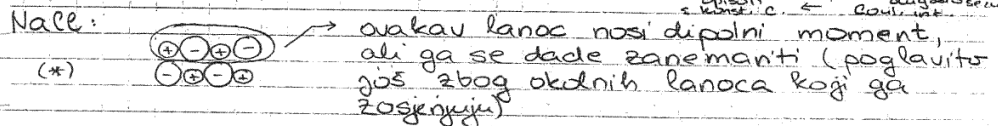 s konst. c. ← Coul. int.
NaCl: ⊕⊖⊕⊖ → ovakav lanac nosi dipolni moment,
(*) ⊖⊕⊖⊕ ali ga se dade zanemariti (poglavito
još zbog okolnih lanaca koji ga
zasjenjuju)